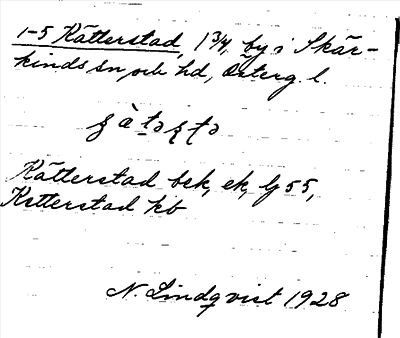 1-5 Kätterstad, 1 3/4, by i Skär-
kinds sn och hd, Österg. l.
Kätterstad bsk, ek, lj 55,
Ketterstad kb
N. Lindqvist 1928